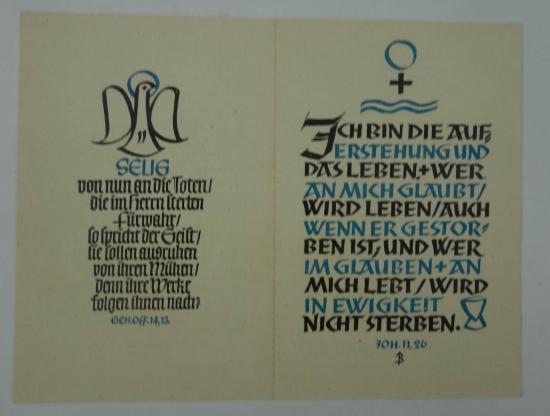 SELIG
von nun an die Toten/
die im Herrn sterben
Fürwahr/
so spricht der Geist/
sie sollen ausruhen
von ihren Mühen/
denn ihre Werke
folgen ihnen nach
GEH. OFF. 14,13.
ICH BIN DIE AUF-
ERSTEHUNG UND
DAS LEBEN + WER
AN MICH GLAUBT/
WIRD LEBEN/AUCH
WENN ER GESTOR-
BEN IST, UND WER
IM GLAUBEN + AN
MICH LEBT/WIRD
IN EWIGKEIT
NICHT STERBEN.
JOH. 11,26